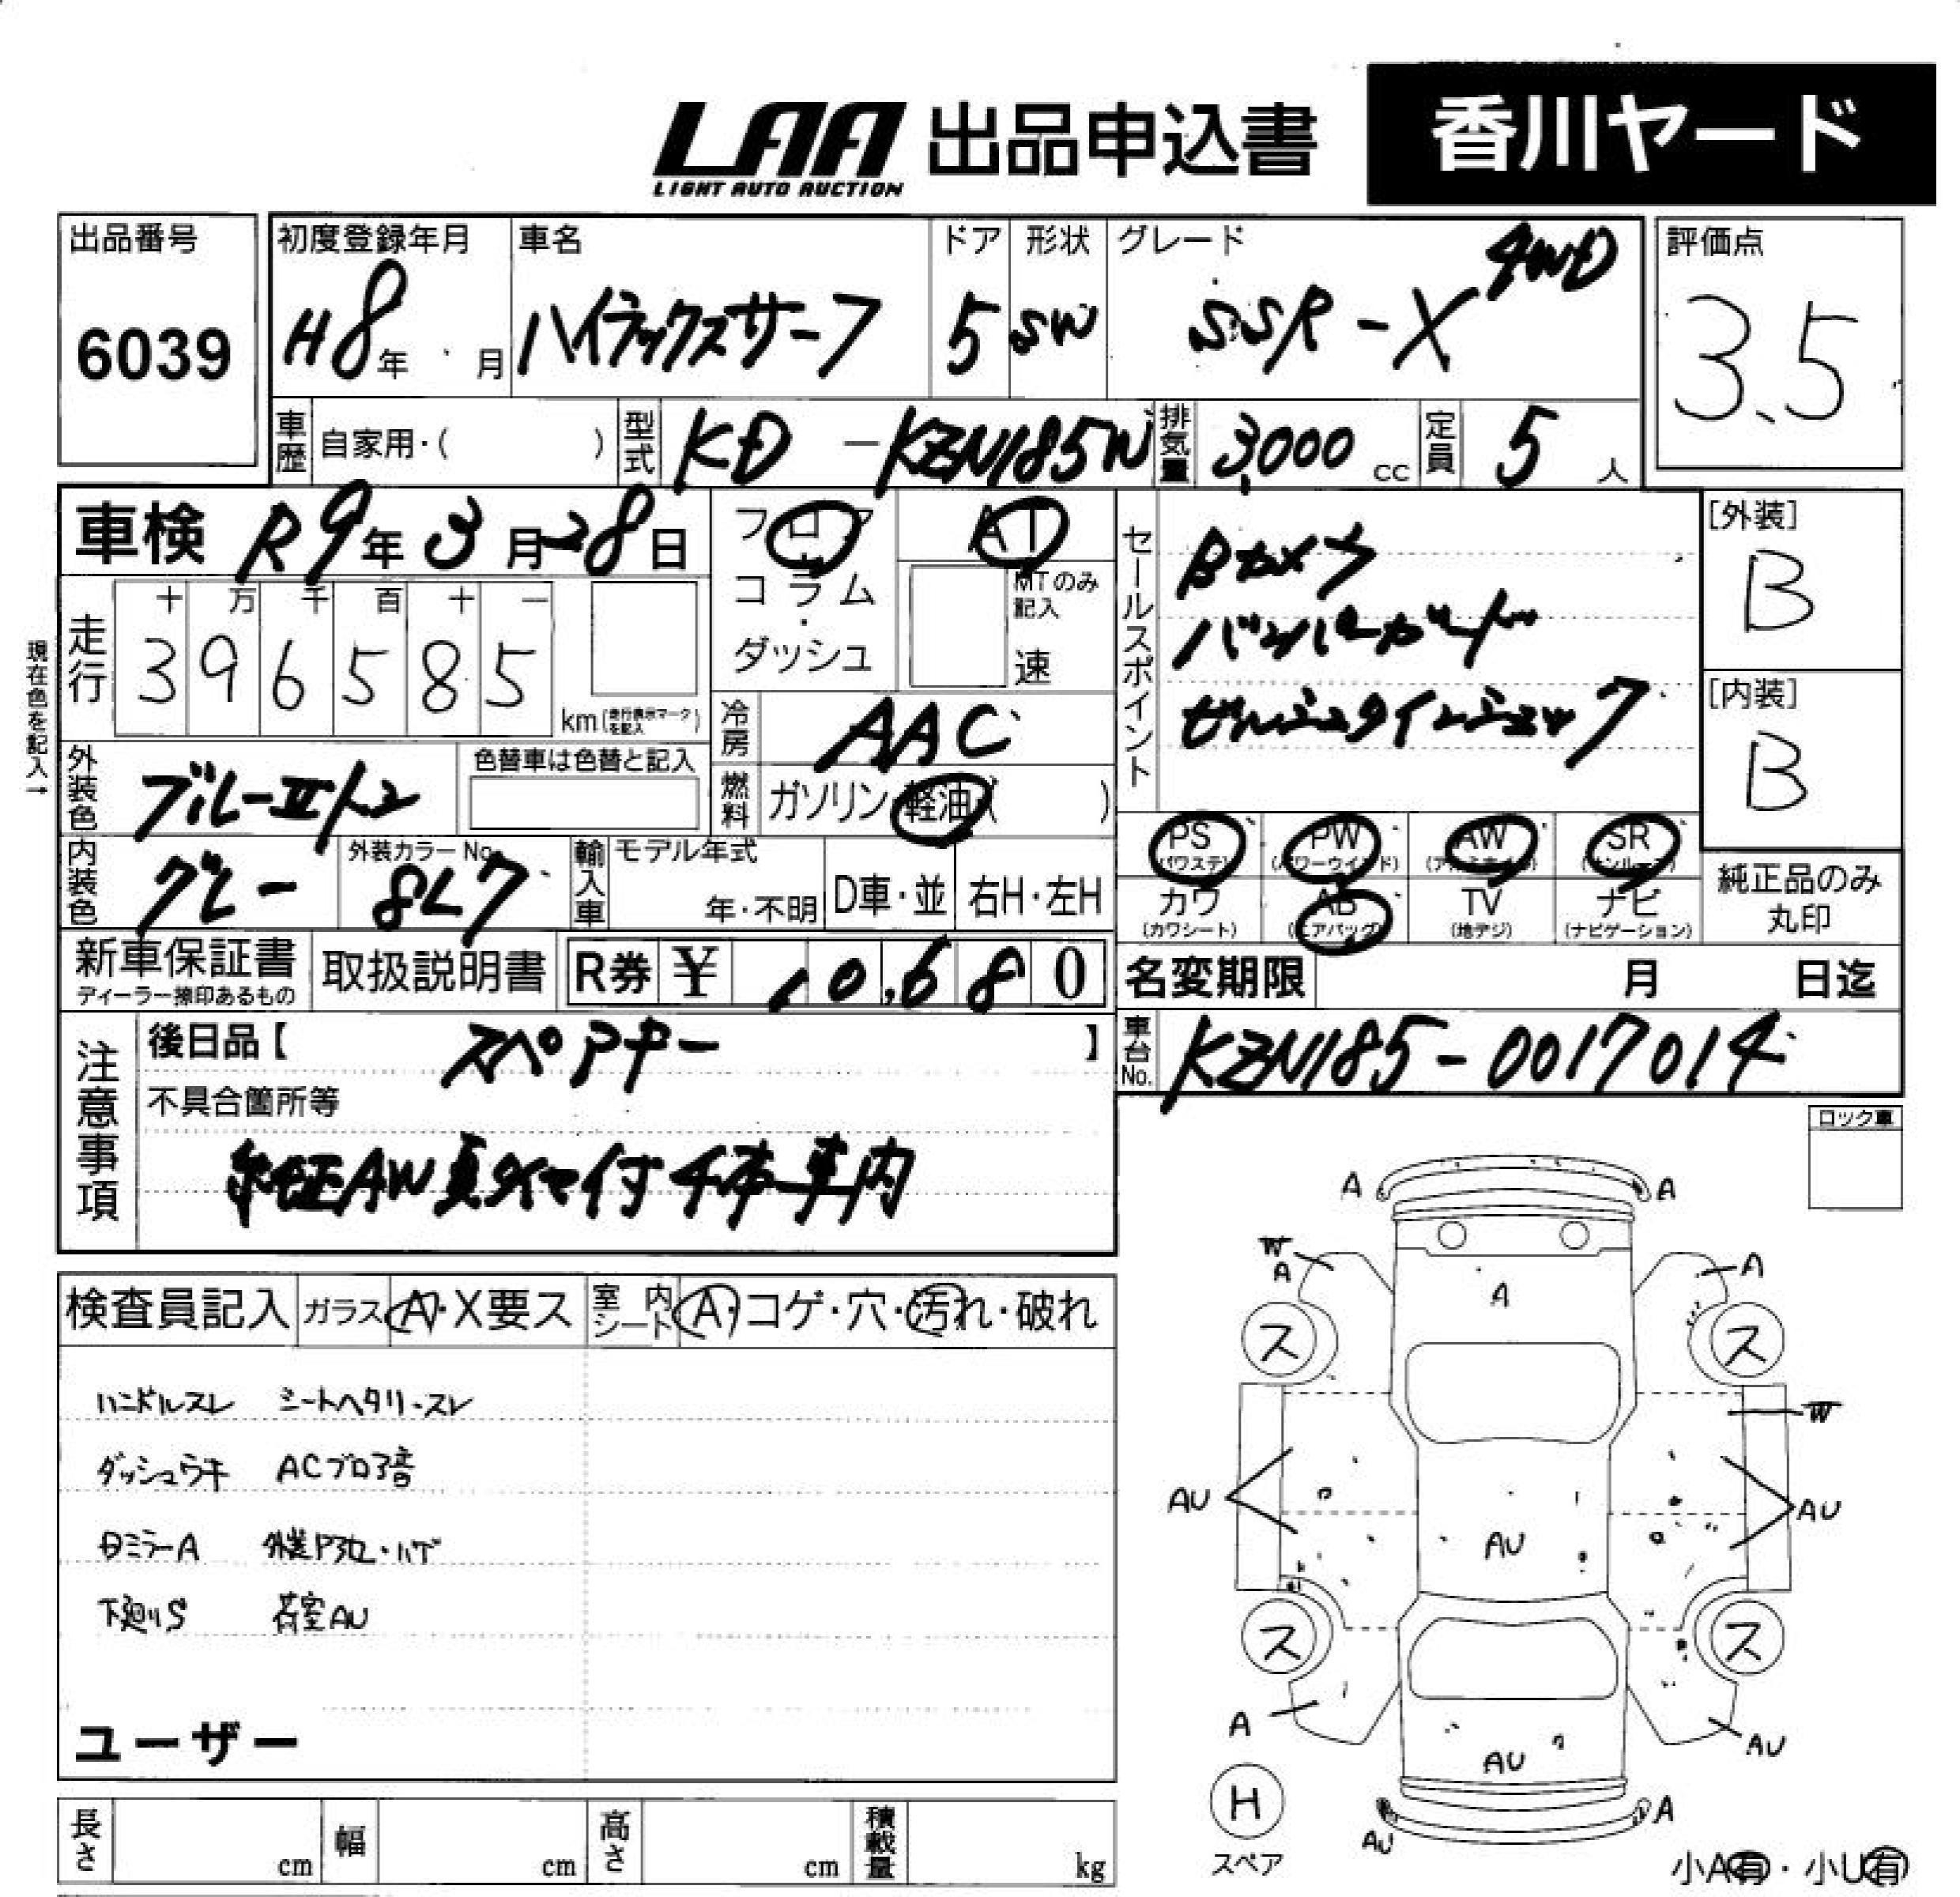 LAA 出品申込書 香川ヤード
LIGHT AUTO AUCTION
出品番号
6039
初度登録年月
H8年 月
車名
ハイラックスサーフ
ドア
5
形状
SW
グレード
SSR-X 4WD
評価点
3.5
車歴 自家用・( )
型式 KD-KZN185W
排気量 3,000 cc
定員 5 人
車検 R9年3月28日
フロア・コラム・ダッシュ
AT
MTのみ記入
速
セールスポイント
Bカメラ
バンパーガード
[外装]
B
[内装]
B
現在色を記入→
走行
十 万 千 百 十 一
3 9 6 5 8 5
km(走行表示マークを記入)
冷房 AAC
外装色
色替車は色替と記入
燃料 ガソリン・軽油・( )
内装色 グレー
外装カラーNo. 8L7
輸入車 モデル年式
年・不明
D車・並
右H・左H
PS (パワステ)
PW (パワーウインド)
AW (アルミホイル)
SR (サンルーフ)
カワ (カワシート)
AB (エアバッグ)
TV (地デジ)
ナビ (ナビゲーション)
純正品のみ丸印
新車保証書
ディーラー捺印あるもの
取扱説明書
R券 ¥ 10,680
名変期限 月 日迄
注意事項
後日品【 スペアキー 】
不具合箇所等
純正AW夏タイヤ付4本車内
車台No. KZN185-0017014
ロック車
検査員記入 ガラス A・X要ス 室内シート A・コゲ・穴・汚れ・破れ
ハンドルスレ シートヘタリ・スレ
ダッシュウキ ACブロア音
Bミラー A
下廻りS 荷室AU
ユーザー
A A
W
A A
A
ス ス
W
AU AU
AU
ス ス
A AU
AU
H
スペア
AU A
小A有・小U有
長さ cm
幅 cm
高さ cm
積載量 kg